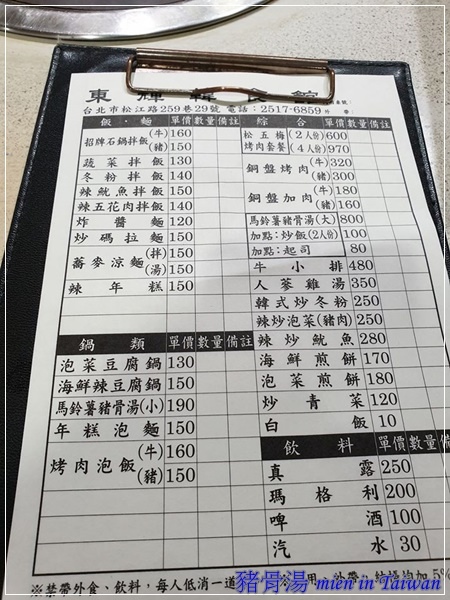 東輝韓食館
台北市松江路259巷29號 電話:2517-6859
飯.麵 單價 數量 備註
招牌石鍋拌飯(牛) 160
(豬) 150
蔬菜拌飯 130
冬粉拌飯 140
辣魷魚拌飯 150
辣五花肉拌飯 140
炸醬麵 120
炒碼拉麵 150
蕎麥涼麵(拌) 150
(湯) 150
辣年糕 150
鍋類 單價 數量 備註
泡菜豆腐鍋 130
海鮮辣豆腐鍋 150
馬鈴薯豬骨湯(小) 190
年糕泡麵 150
烤肉泡飯(牛) 160
(豬) 150
綜合 單價 數量 備註
松五梅烤肉套餐(2人份) 600
(4人份) 970
銅盤烤肉(牛) 320
(豬) 300
銅盤加肉(牛) 180
(豬) 160
馬鈴薯豬骨湯(大) 800
加點:炒飯(2人份) 100
加點:起司 80
牛小排 480
人蔘雞湯 350
韓式炒冬粉 250
辣炒泡菜(豬肉) 250
辣炒魷魚 280
海鮮煎餅 170
泡菜煎餅 180
炒青菜 120
白飯 10
飲料 單價 數量 備註
真露 250
瑪格利 200
啤酒 100
汽水 30
※禁帶外食、飲料,每人低消一道
均加5%
豬骨湯 mien in Taiwan